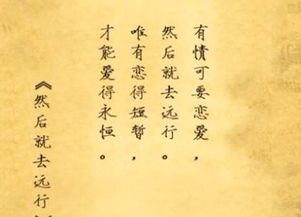 有愦可要恋爱，
然后就去远行。
唯有恋得短暂，
才能爱得永恒。
《然后就去远行